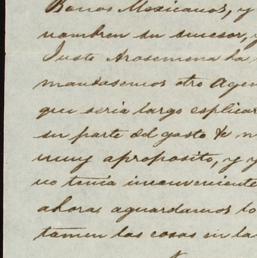 Bonos Mexicanos, y
nombren su sucesor, y
Justo Arosemena la
mandasemos otro Agen
que seria largo esplicar
su parte del gasto &
muy aproposito, y y
no tenia inconveniente
ahora aguardamos lo
tamen las cosas en la